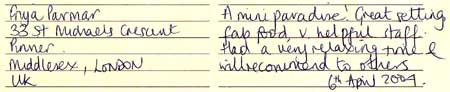 Priya Parmar
33 St Michaels Crescent
Pinner.
Middlesex, LONDON
UK
A mini paradise! Great setting
fab food, v. helpful staff.
Had a very relaxing time &
will recommend to others
6th April 2004.